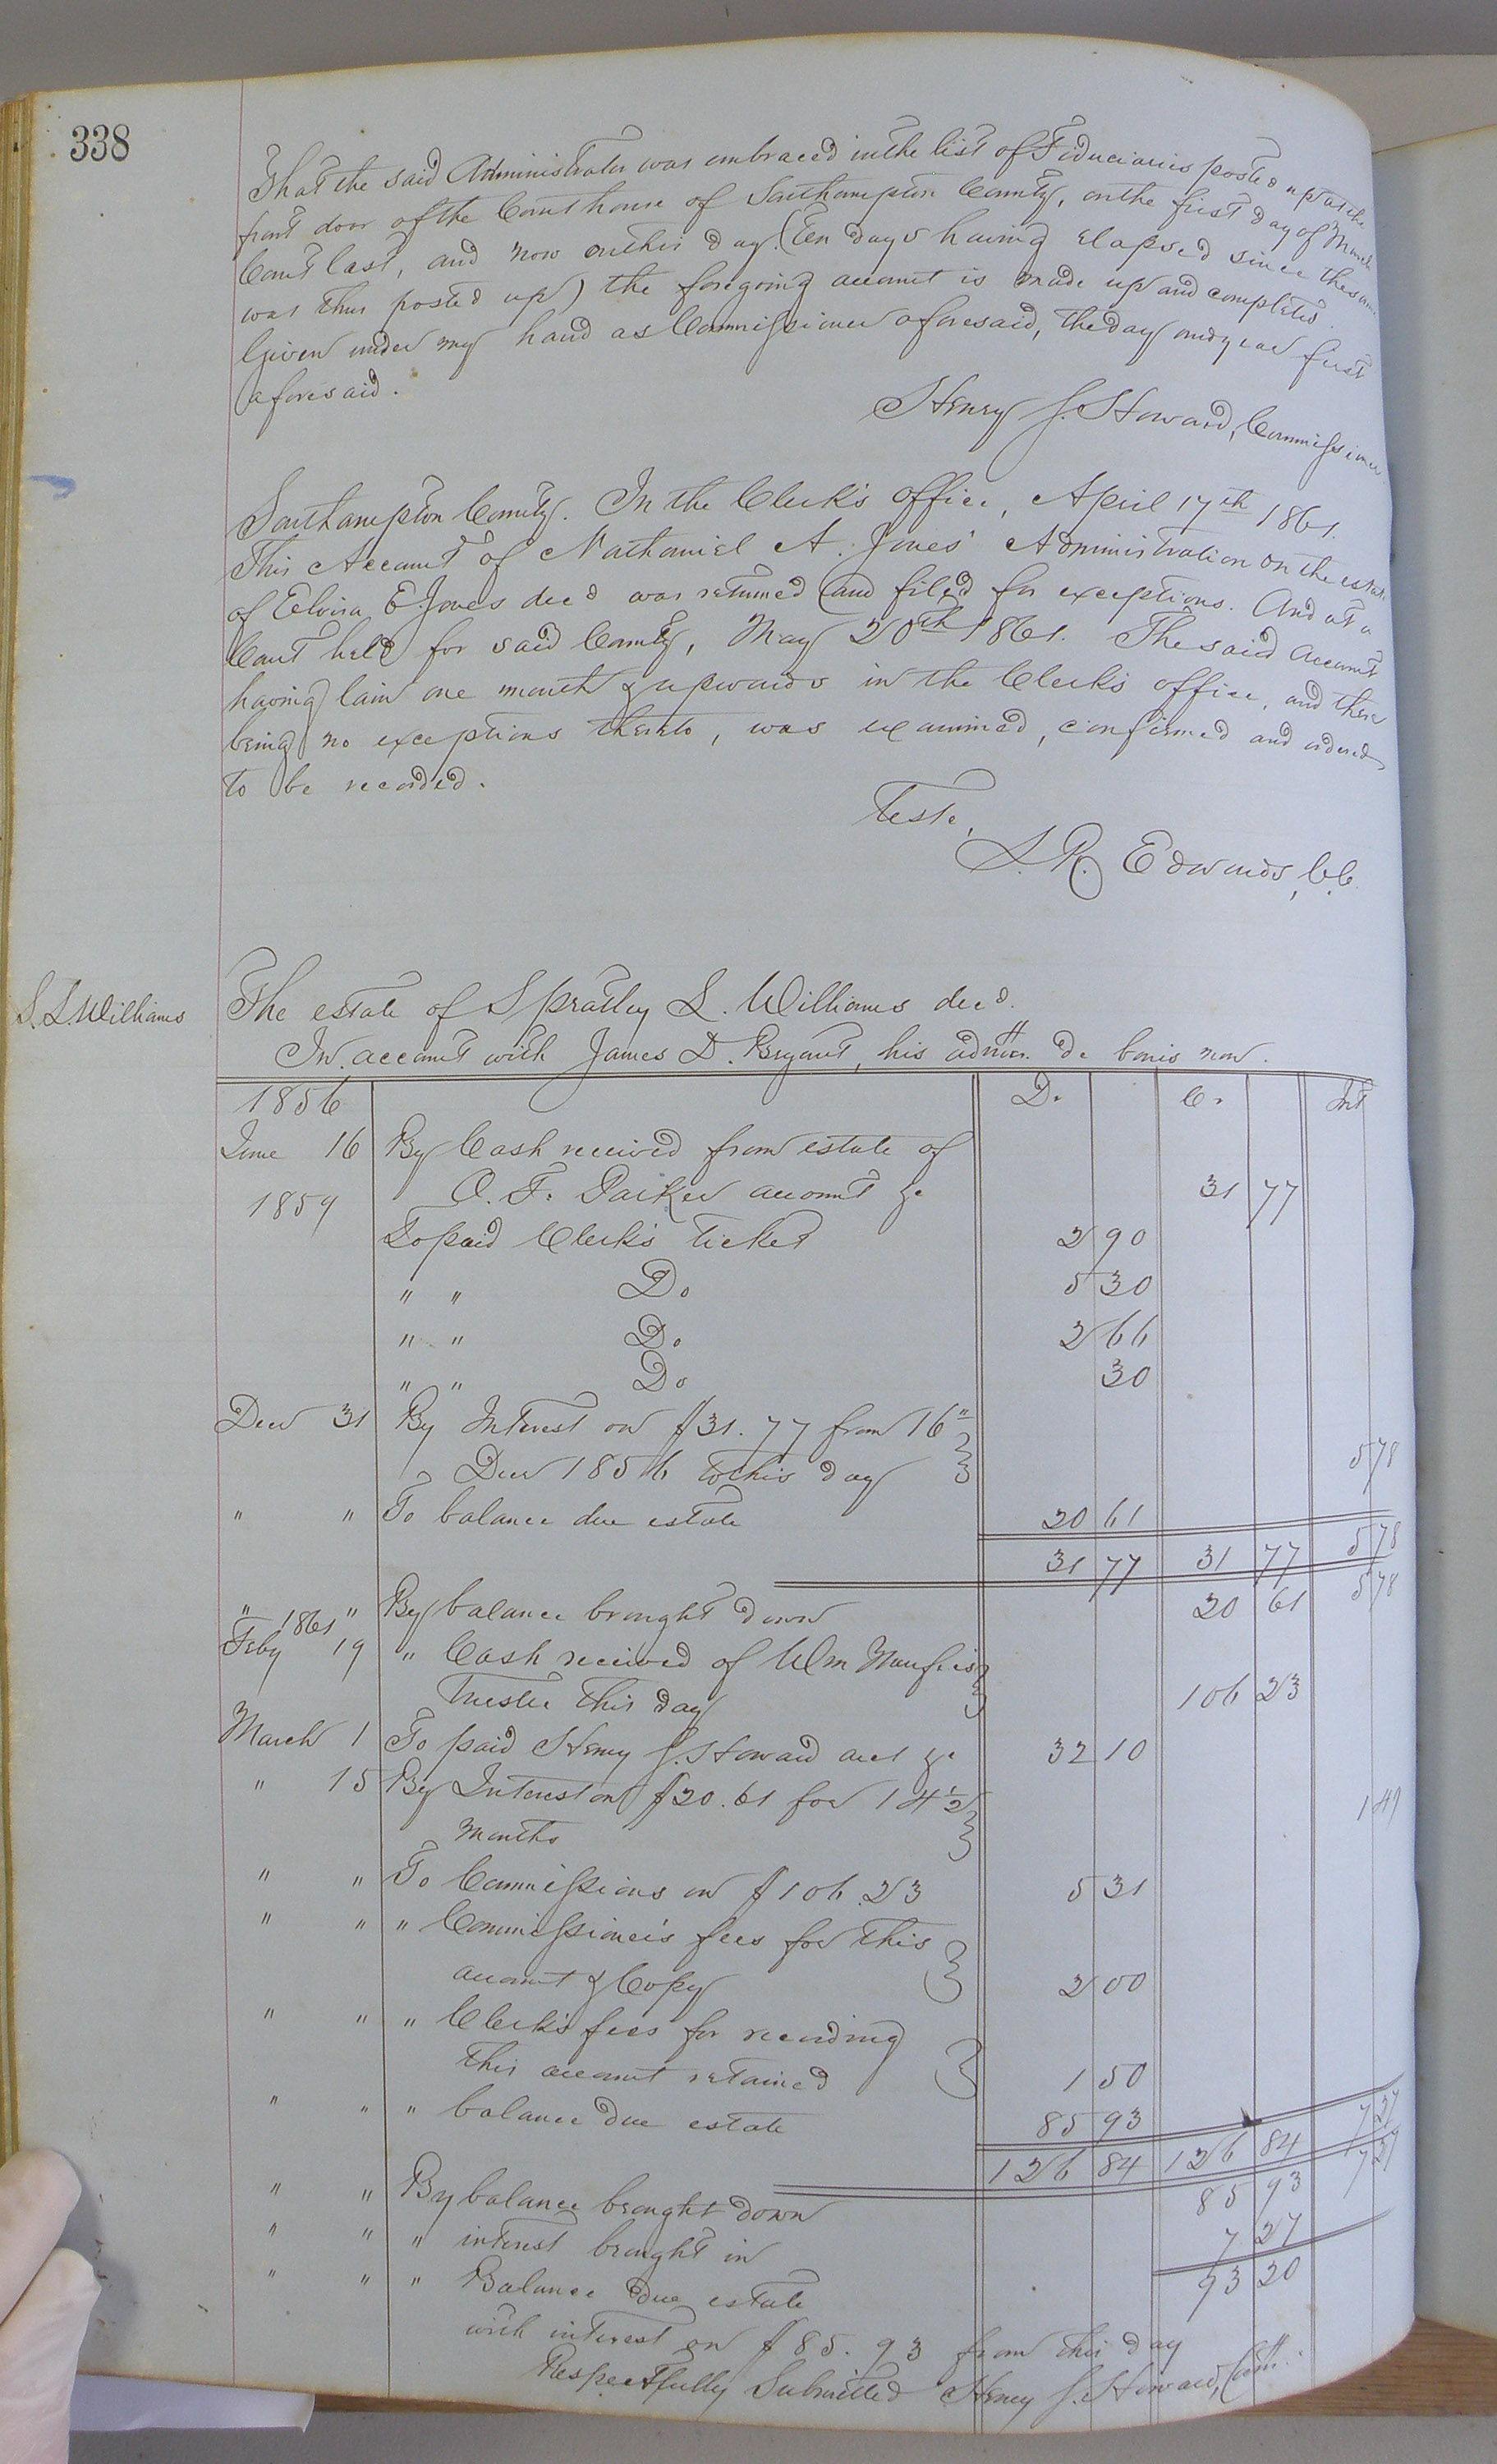 338
That the said Administrator was embraced in the list of Fiduciaries posted up at the
front door of the Courthouse of Southampton County, on the first day of March
Court last, and now on this day (Ten days having elapsed since the same
was thus posted up) the foregoing account is made up and completed.
Given under my hand as Commissioner aforesaid, the day and year first
aforesaid.
Henry J. Howard, Commissioner
Southampton County. In the Clerk's office, April 17th 1861.
This Account of Nathaniel A. Jones' Administration on the estate
of Elvira E. Jones decd was returned and filed for exceptions. And at a
Court held for said County, May 20th 1861. The said Account
having lain one month & upwards in the Clerk's office, and there
being no exceptions thereto, was examined, confirmed and ordered
to be recorded.
Teste,
L. R. Edwards, C.C.
S. L. Williams The estate of Spratley L. Williams decd.
In account with James D. Bryant, his admr. de bonis non.
1856 D. C. Int
June 16 By Cash received from estate of
O. F. Parker account &c 31 77
1859 To paid Clerk's ticket 2 90
" " Do 5 30
" " Do 2 66
" " Do 30
Decr 31 By Interest on $31.77 from 16th
Decr 1856 to this day 5 78
" " To balance due estate 20 61
31 77 31 77 5 78
" " By balance brought down 20 61 5 78
1861
Feby 19 " Cash received of Wm
Trustee this day 106 23
March 1 To paid Henry J. Howard acct &c 32 10
" 15 By Interest on $20.61 for 14½
months 1 49
" " To Commissions on $106.23 5 31
" " " Commissioner's fees for this
account & Copy 2 00
" " " Clerk's fees for recording
this account retained 1 50
" " " balance due estate 85 93
126 84 126 84 7 27
" " By balance brought down 85 93 7 27
" " " interest brought in 7 27
" " " Balance due estate 93 20
with interest on $85.93 from this day
Respectfully Submitted Henry J. Howard,